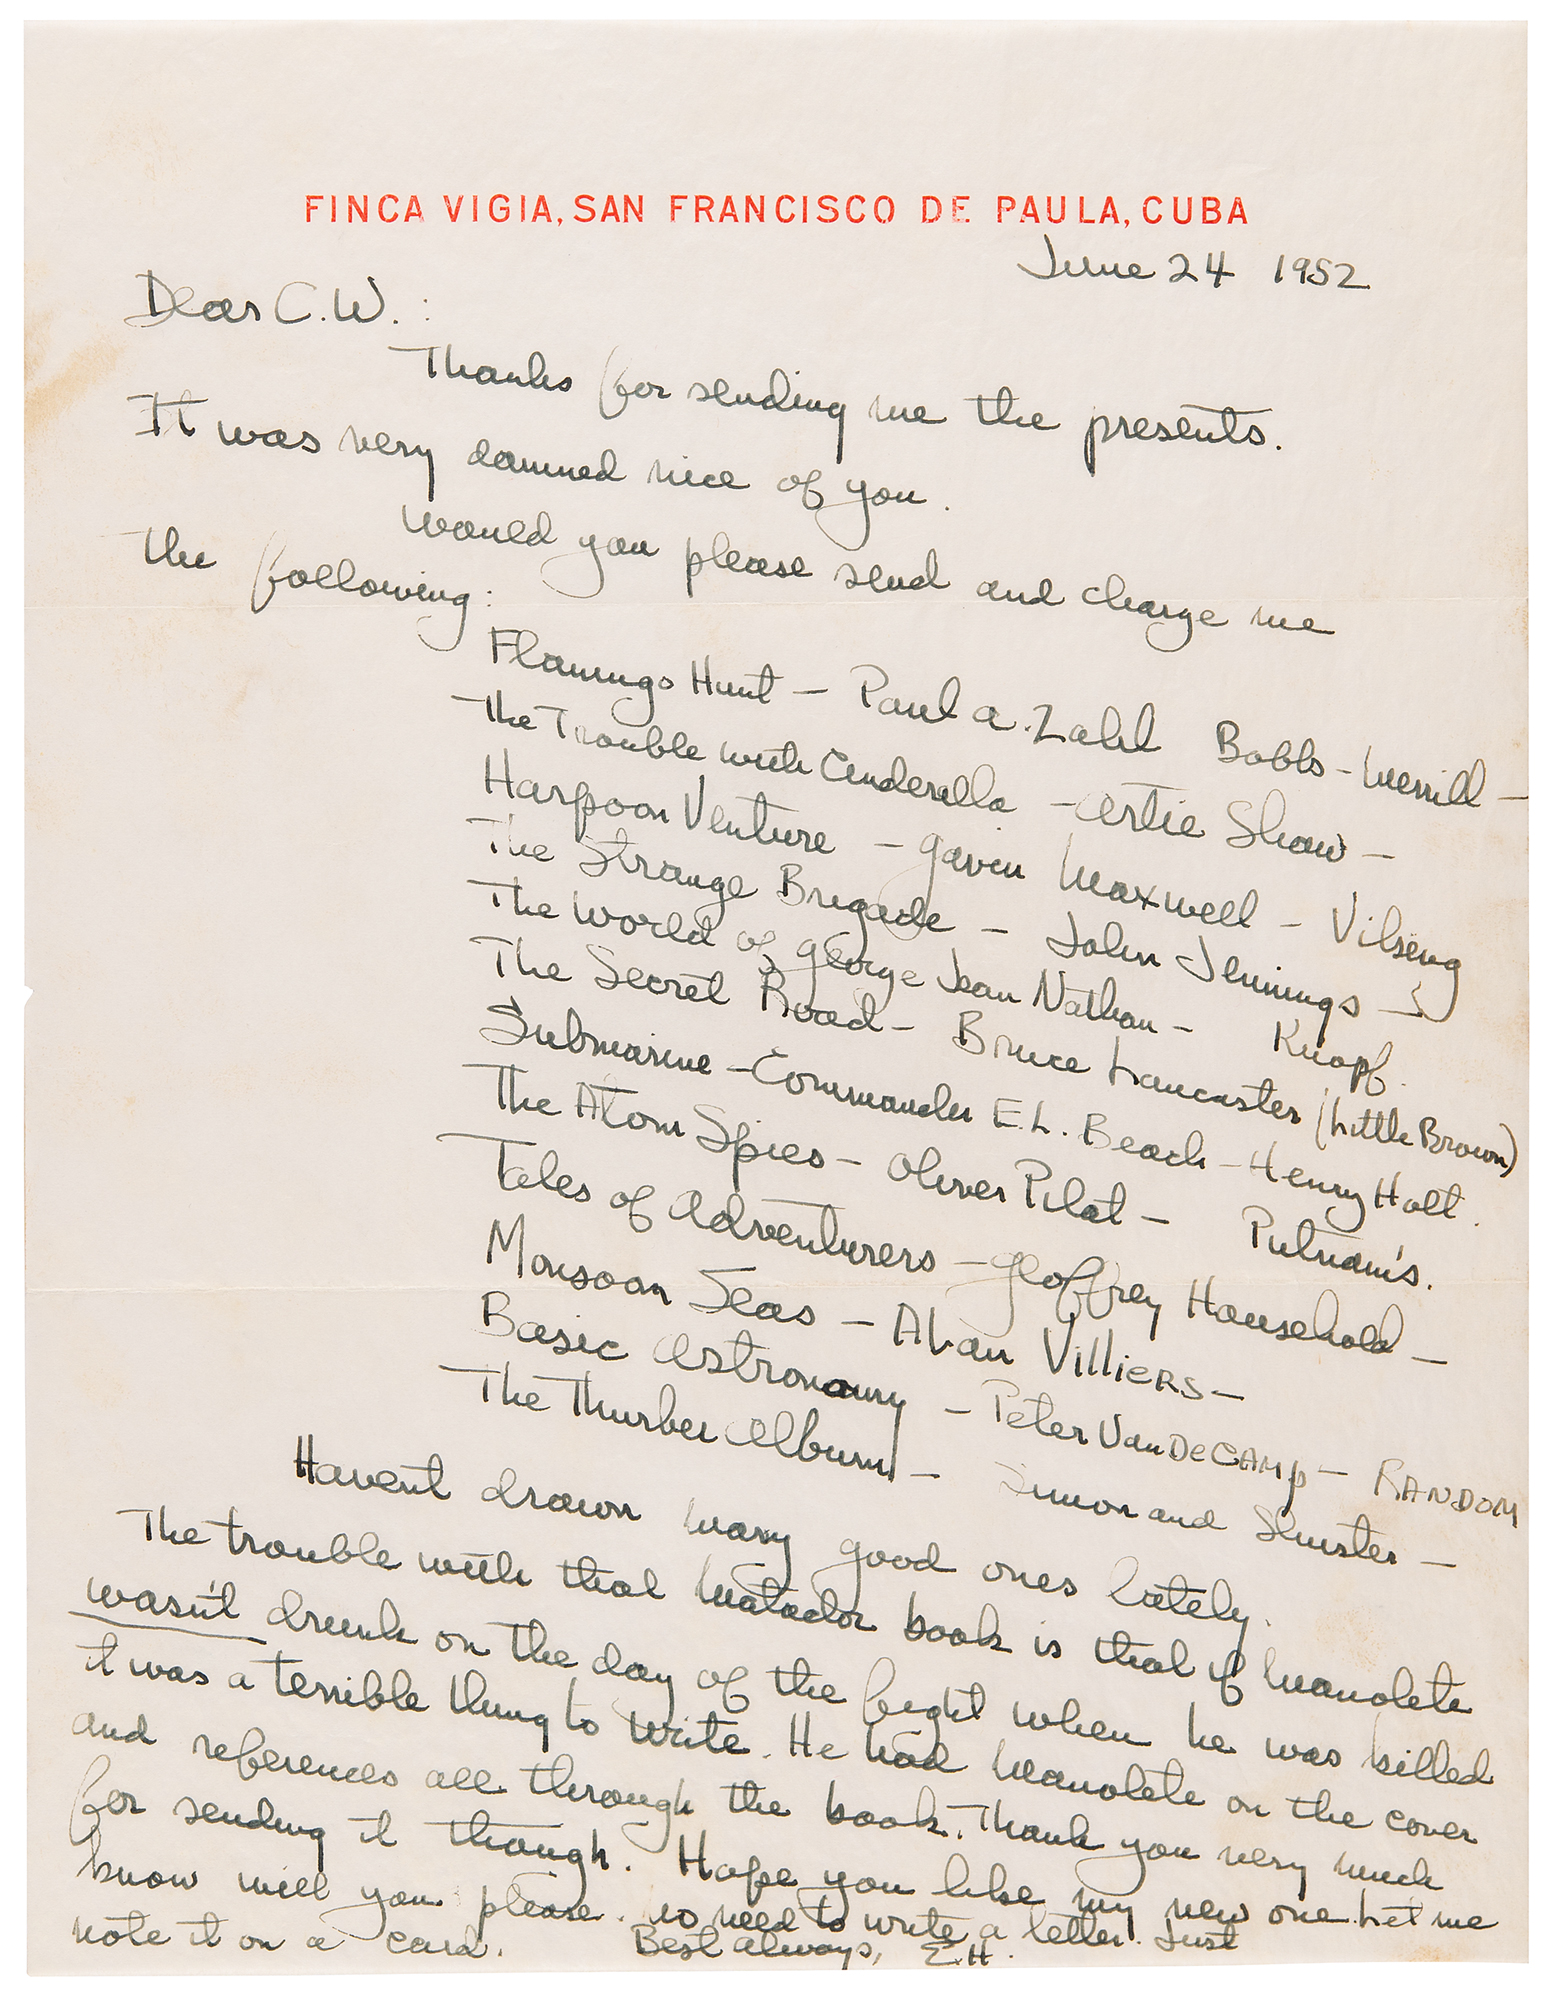 FINCA VIGIA, SAN FRANCISCO DE PAULA, CUBA
June 24 1952
Dear C.W. :
Thanks for sending me the presents.
It was very damned nice of you.
Would you please send and charge me
the following:
Flamingo Hunt — Paul A. Zahl Bobbs-Merrill —
The Trouble with Cinderella — Artie Shaw —
Harpoon Venture — Gavin Maxwell — Vilseng
The Strange Brigade — John Jennings —
The World of George Jean Nathan — Knopf.
The Secret Road — Bruce Lancaster (Little Brown)
Submarine — Commander E.L. Beach — Henry Holt.
The Atom Spies — Oliver Pilat — Putnam's.
Tales of Adventurers — Geoffrey Household —
Monsoon Seas — Alan Villiers —
Basic Astronomy — Peter Van DeCAMp — RANDOM
The Thurber Album — Simon and Shuster —
Havent drawn many good ones lately.
The trouble with that Matador book is that if Manolete
wasn't drunk on the day of the fight when he was killed
it was a terrible thing to write. He had Manolete on the cover
and references all through the book. Thank you very much
for sending it though. Hope you like my new one. Let me
know will you please. No need to write a letter. Just
note it on a card. Best always, E.H.